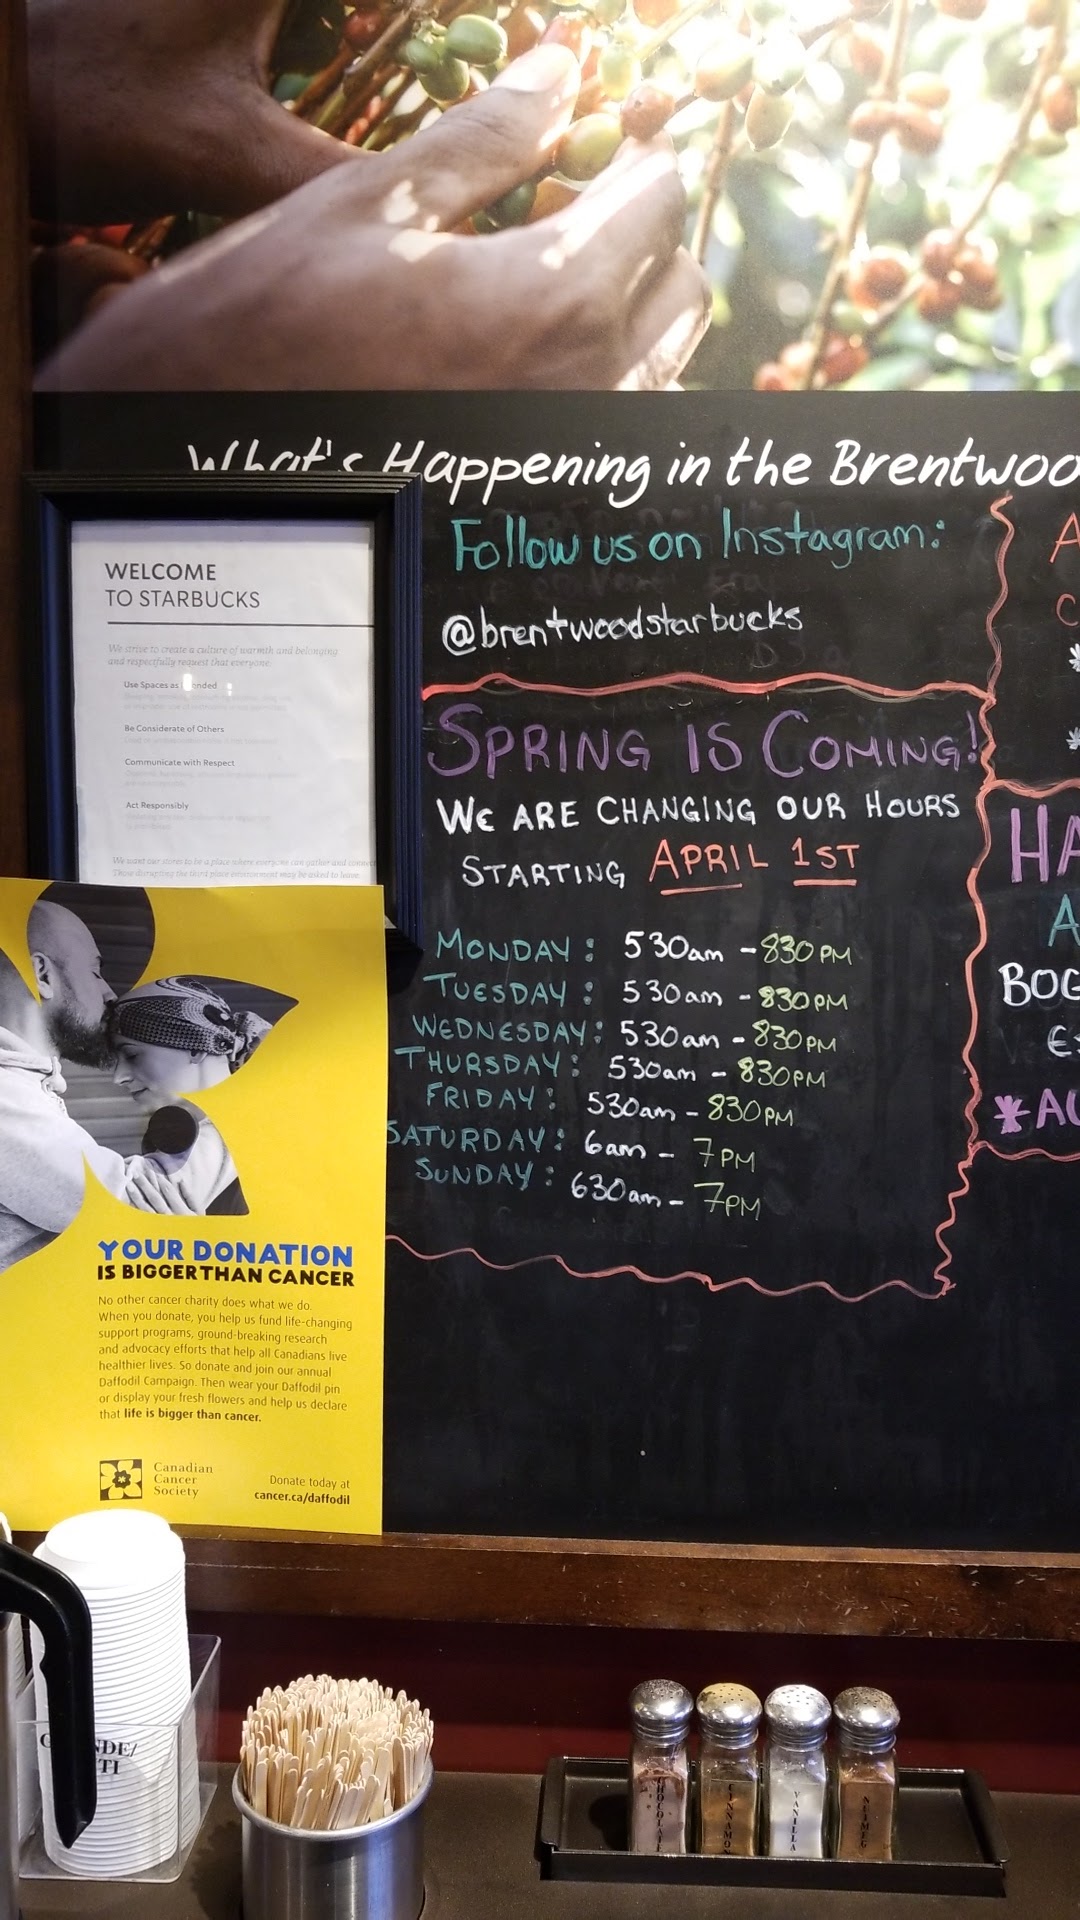 What's Happening in the Brentwoo
Follow us on Instagram:
@brentwoodstarbucks
SPRING IS COMING!
WE ARE CHANGING OUR HOURS
STARTING APRIL 1ST
MONDAY: 530am - 830PM
TUESDAY: 530am - 830PM
WEDNESDAY: 530am - 830PM
THURSDAY: 530am - 830PM
FRIDAY: 530am - 830PM
SATURDAY: 6am - 7PM
SUNDAY: 630am - 7PM
A
C
*
*
HA
A
BOG
*AU
WELCOME
TO STARBUCKS
We strive to create a culture of warmth and belonging
and respectfully request that everyone:
Use Spaces as
Be Considerate of Others
Communicate with Respect
Act Responsibly
We want our stores to be a place where everyone can gather and connect
Those disrupting the third place environment may be asked to leave.
YOUR DONATION
IS BIGGER THAN CANCER
No other cancer charity does what we do.
When you donate, you help us fund life-changing
support programs, ground-breaking research
and advocacy efforts that help all Canadians live
healthier lives. So donate and join our annual
Daffodil Campaign. Then wear your Daffodil pin
or display your fresh flowers and help us declare
that life is bigger than cancer.
Canadian
Cancer
Society
Donate today at
cancer.ca/daffodil
NDE/
TI
CHOCOLATE
CINNAMON
VANILLA
NUTMEG